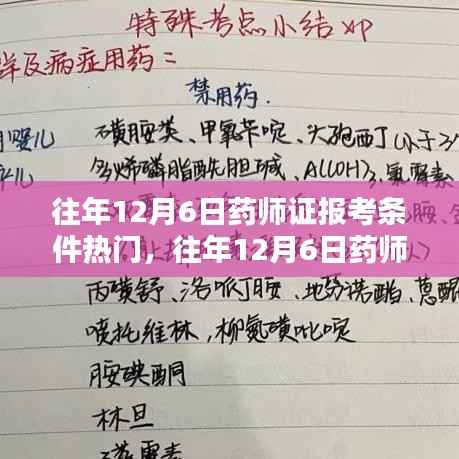 特殊考点小结xp
详及病症用药=
禁用药.
磺胺类、甲氧苄啶、头孢西丁(小于3
多烯磷脂酰胆碱、Al(OH)3、氯霉素
往年12月6日药师证报考条
件热门，往年12月6日药师
丙磺舒、洛哌丁胺、地芬诺酯、蒽醌
喷托维林,柳氮磺吡啶
胺碘酮
林旦